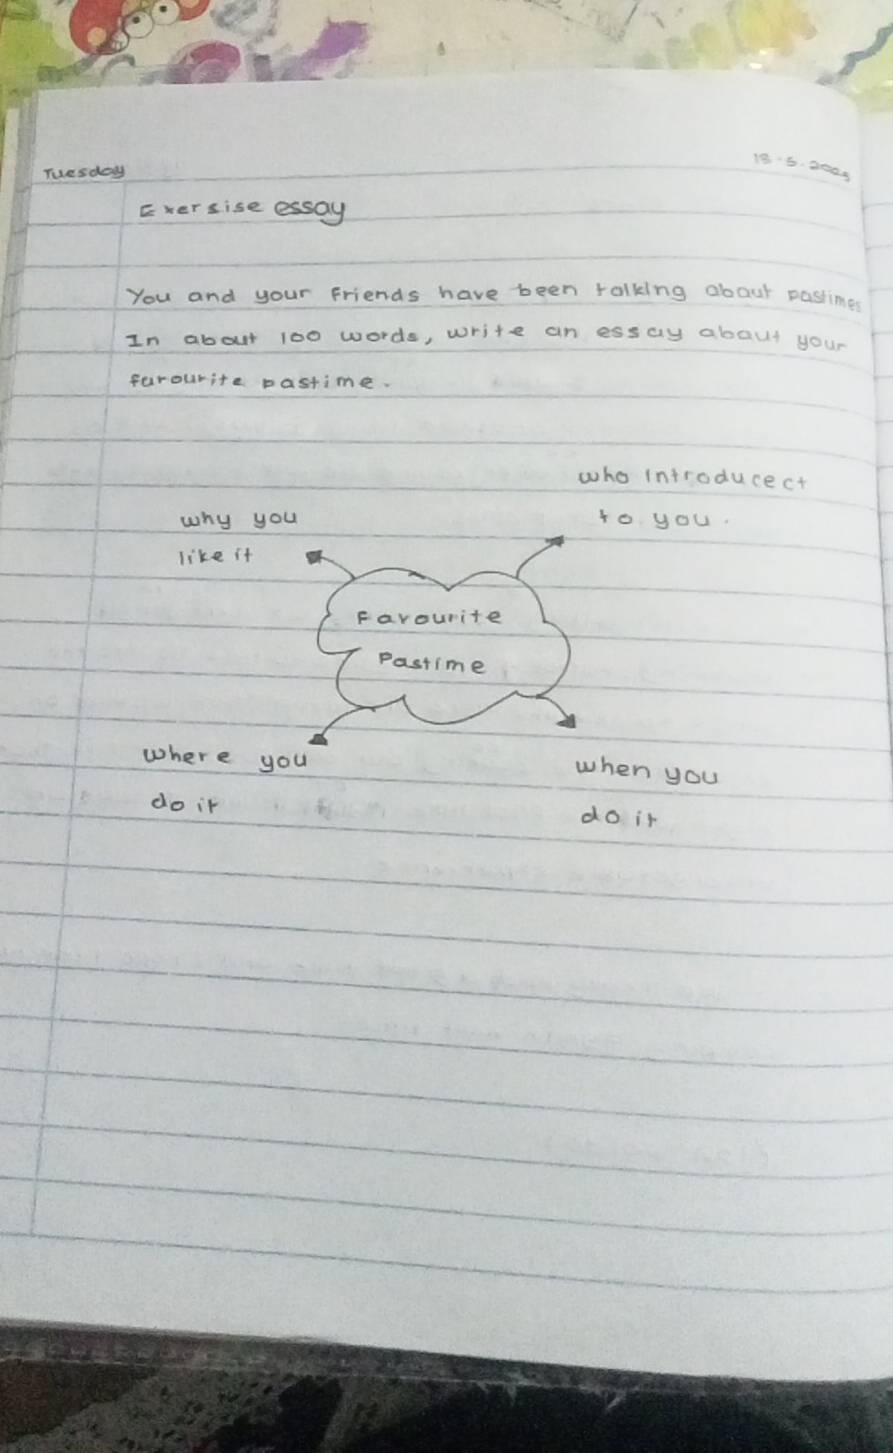 Tuesday
Exersise essay
You and your friends have been talking about pastimes
In about 100 words, write an essay about your
favourite pastime.
who introducect
to you.
why you
like it
Favourite
Pastime
where you
do it
when you
do it